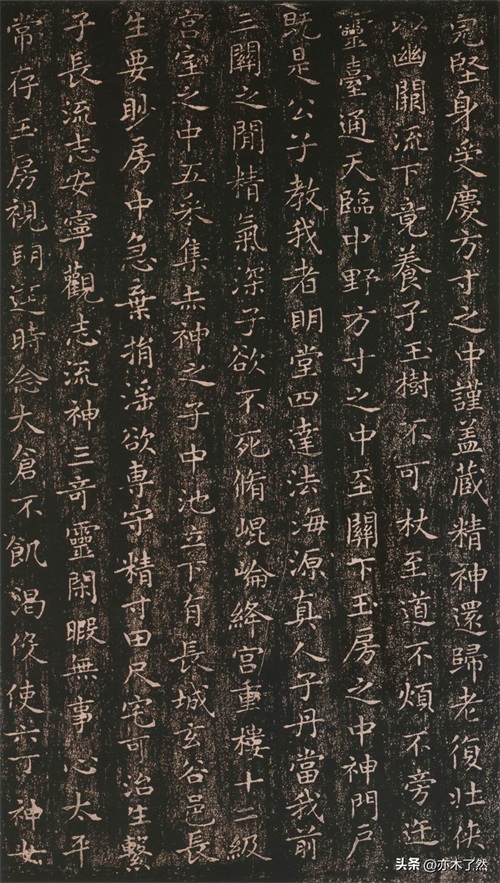 完堅身受慶方寸之中謹盖藏精神還歸老復壯俠
以幽闕流下竟養子玉樹不可杖至道不煩不旁迕
靈臺通天臨中野方寸之中至關下玉房之中神門戶
既是公子教我者明堂四達法海源真人子丹當我前
三關之間精氣深子欲不死脩崐崘絳宮重樓十二級
宮室之中五采集赤神之子中池立下有長城玄谷邑長
生要眇房中急棄捐淫欲専守精寸田尺宅可治生繫
子長流志安寧觀志流神三奇靈閑暇無事心太平
常存玉房視明達時念大倉不飢渴役使六丁神女
头条 @亦木了然